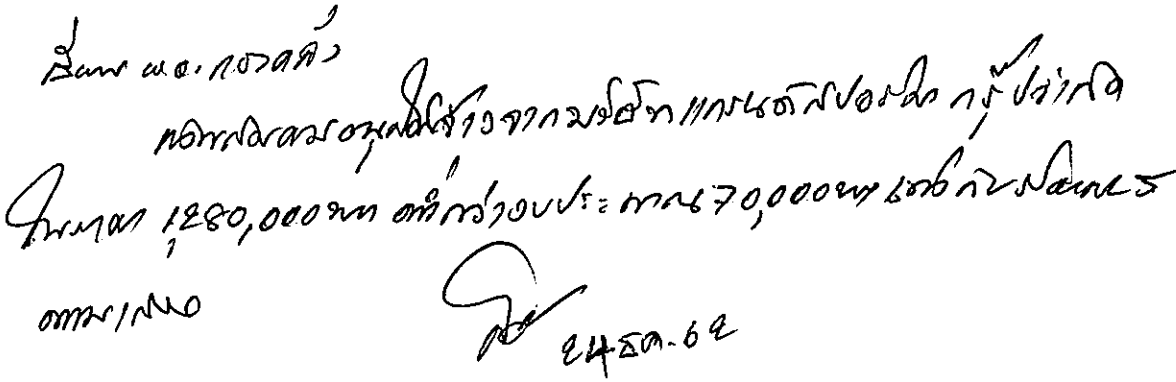 เรียน ผอ.กรวดคิว
เห็นสมควรอนุมัติจ้างจากบริษัท แกรนด์สปอร์ต กรุ๊ป จำกัด
ในราคา 1,280,000 บาท ต่ำกว่างบประมาณ 70,000 บาท
ตามเสนอ
24 ธค. 62